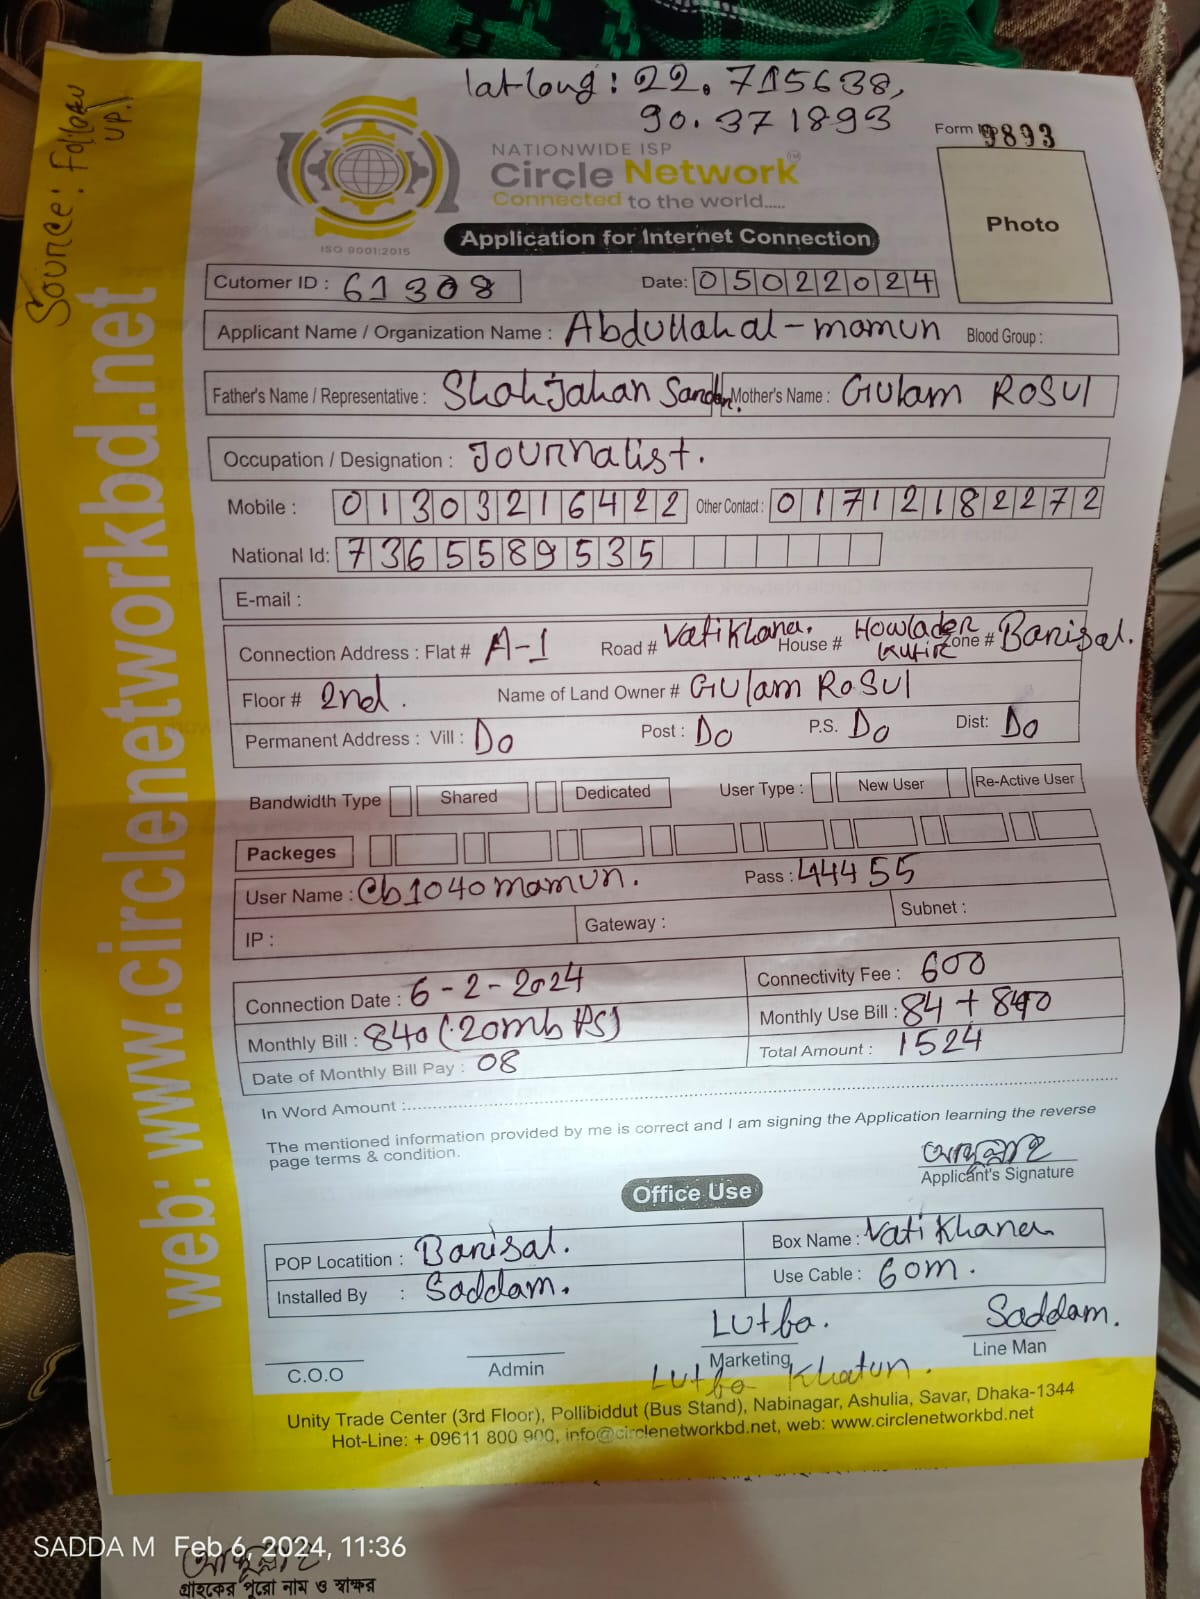 lat-long : 22.715638,
90.371893
Source: Follow
UP.
Form No 9893
NATIONWIDE ISP
Circle Network TM
Connected to the world.....
ISO 9001:2015
Application for Internet Connection
Photo
Cutomer ID : 61308
Date: 05022024
Applicant Name / Organization Name : Abdullah al-mamun Blood Group :
Father's Name / Representative : Shahjahan Sardar. Mother's Name : Gulam Rosul
Occupation / Designation : Journalist.
Mobile : 01303216422 Other Contact : 01712182272
National Id: 7365589535
E-mail :
Connection Address : Flat # A-1 Road # Vatikhana. House # Howlader Kutir Zone # Barisal.
Floor # 2nd. Name of Land Owner # Gulam Rosul
Permanent Address : Vill : Do Post : Do P.S. Do Dist: Do
Bandwidth Type Shared Dedicated User Type : New User Re-Active User
Packeges
User Name : Cb1040mamun. Pass : 44455
IP : Gateway : Subnet :
Connection Date : 6-2-2024 Connectivity Fee : 600
Monthly Bill : 840 (20mbps) Monthly Use Bill : 84 + 840
Date of Monthly Bill Pay : 08 Total Amount : 1524
In Word Amount :
The mentioned information provided by me is correct and I am signing the Application learning the reverse
page terms & condition.
Applicant's Signature
Office Use
POP Locatition : Barisal. Box Name : Vatikhana
Installed By : Saddam. Use Cable : 60m.
Lutba. Saddam.
C.O.O Admin Marketing Line Man
Lutba Khatun.
Unity Trade Center (3rd Floor), Pollibiddut (Bus Stand), Nabinagar, Ashulia, Savar, Dhaka-1344
Hot-Line: + 09611 800 900, info@circlenetworkbd.net, web: www.circlenetworkbd.net
web: www.circlenetworkbd.net
SADDA M Feb 6, 2024, 11:36
গ্রাহকের পুরো নাম ও স্বাক্ষর